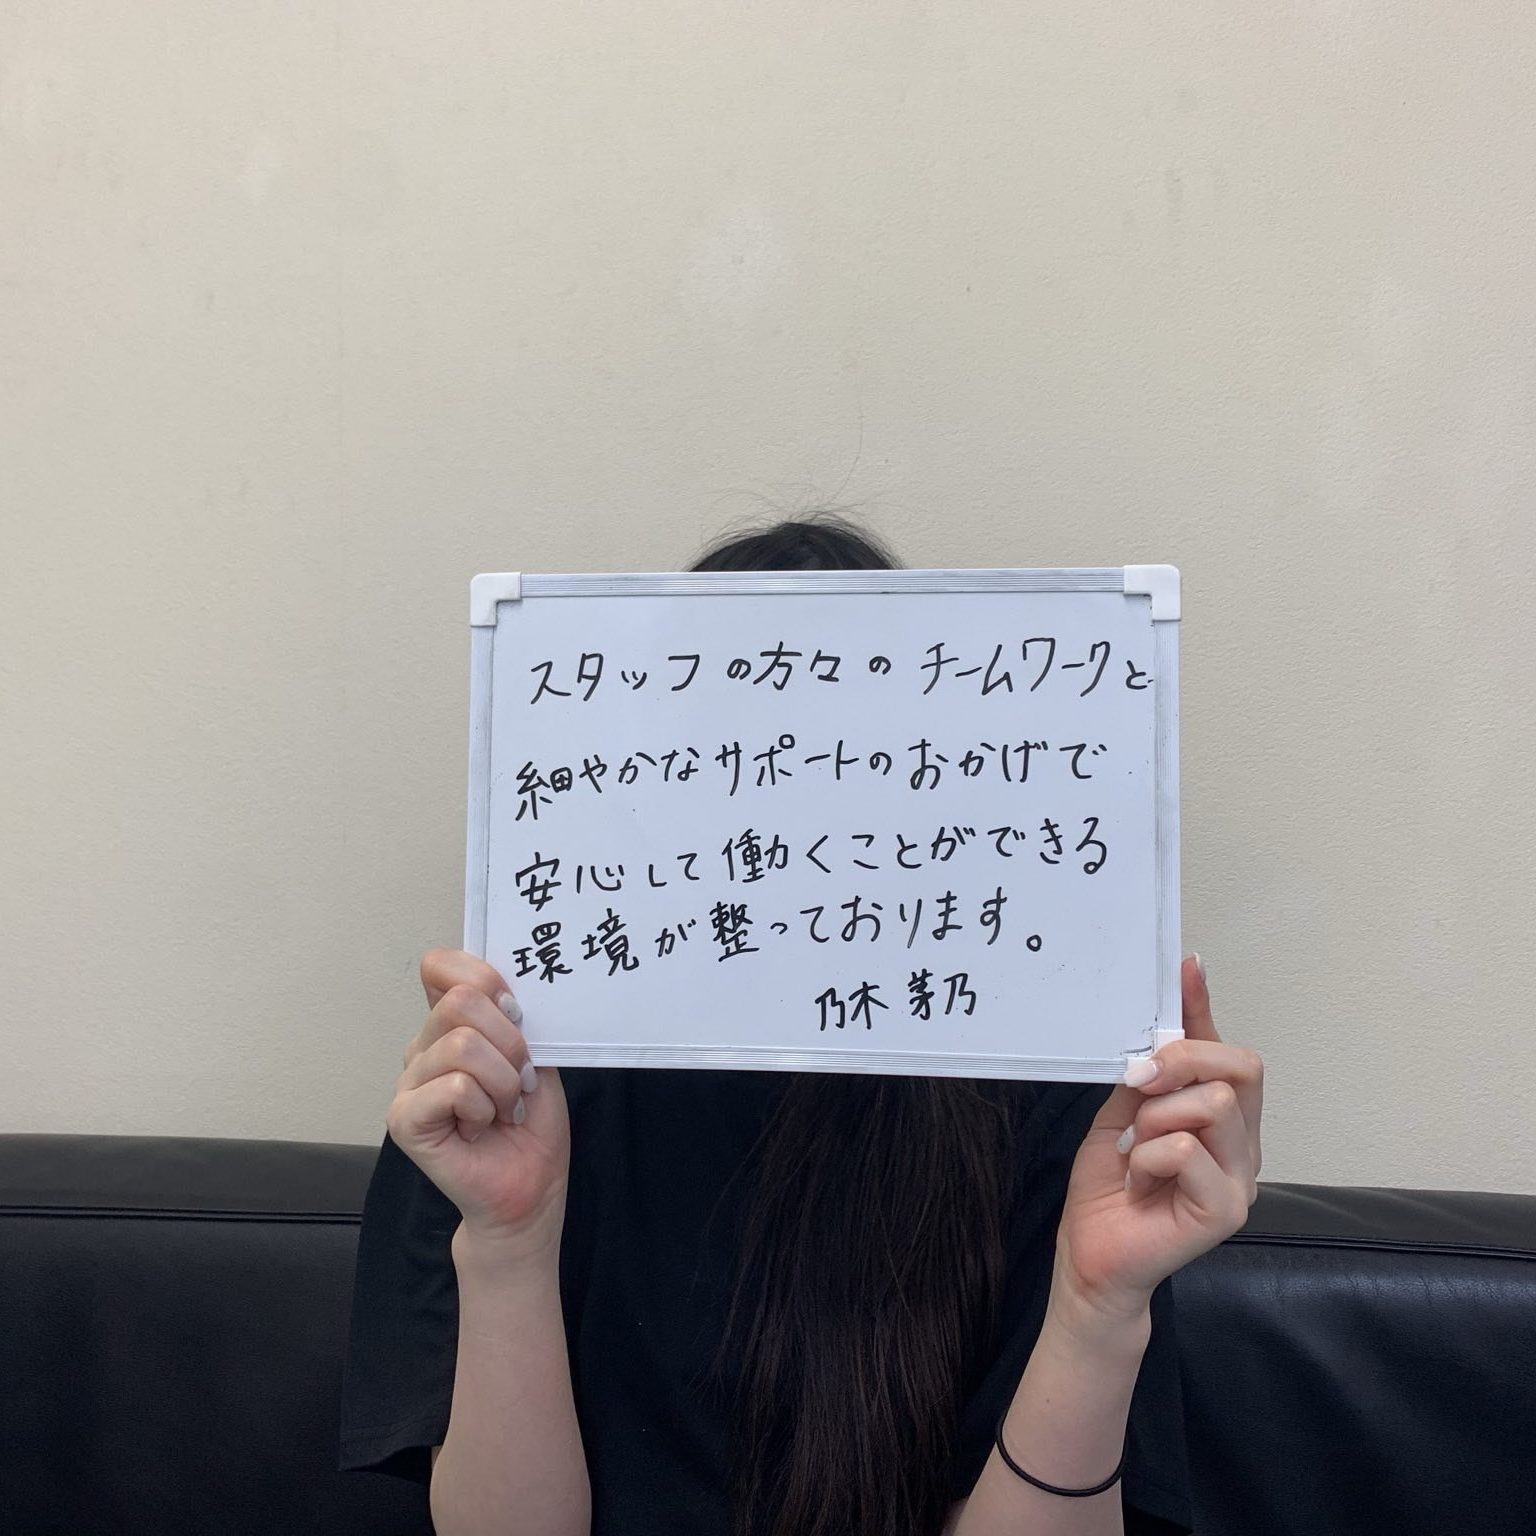 スタッフの方々のチームワークと
細やかなサポートのおかげで
安心して働くことができる
環境が整っております。
乃木 茅乃